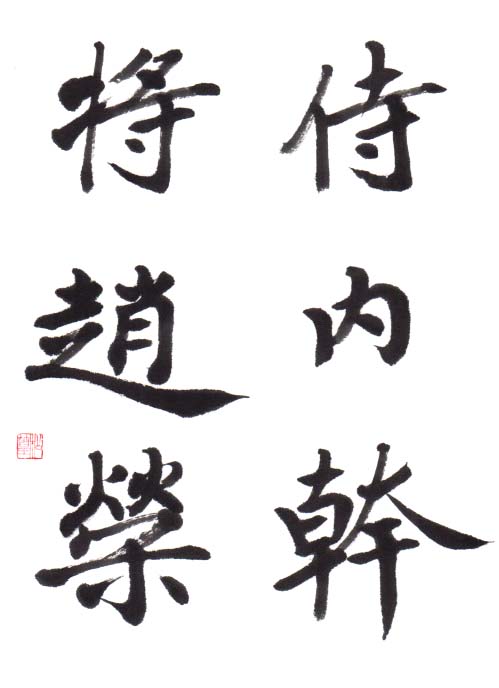 侍内幹
将趙榮